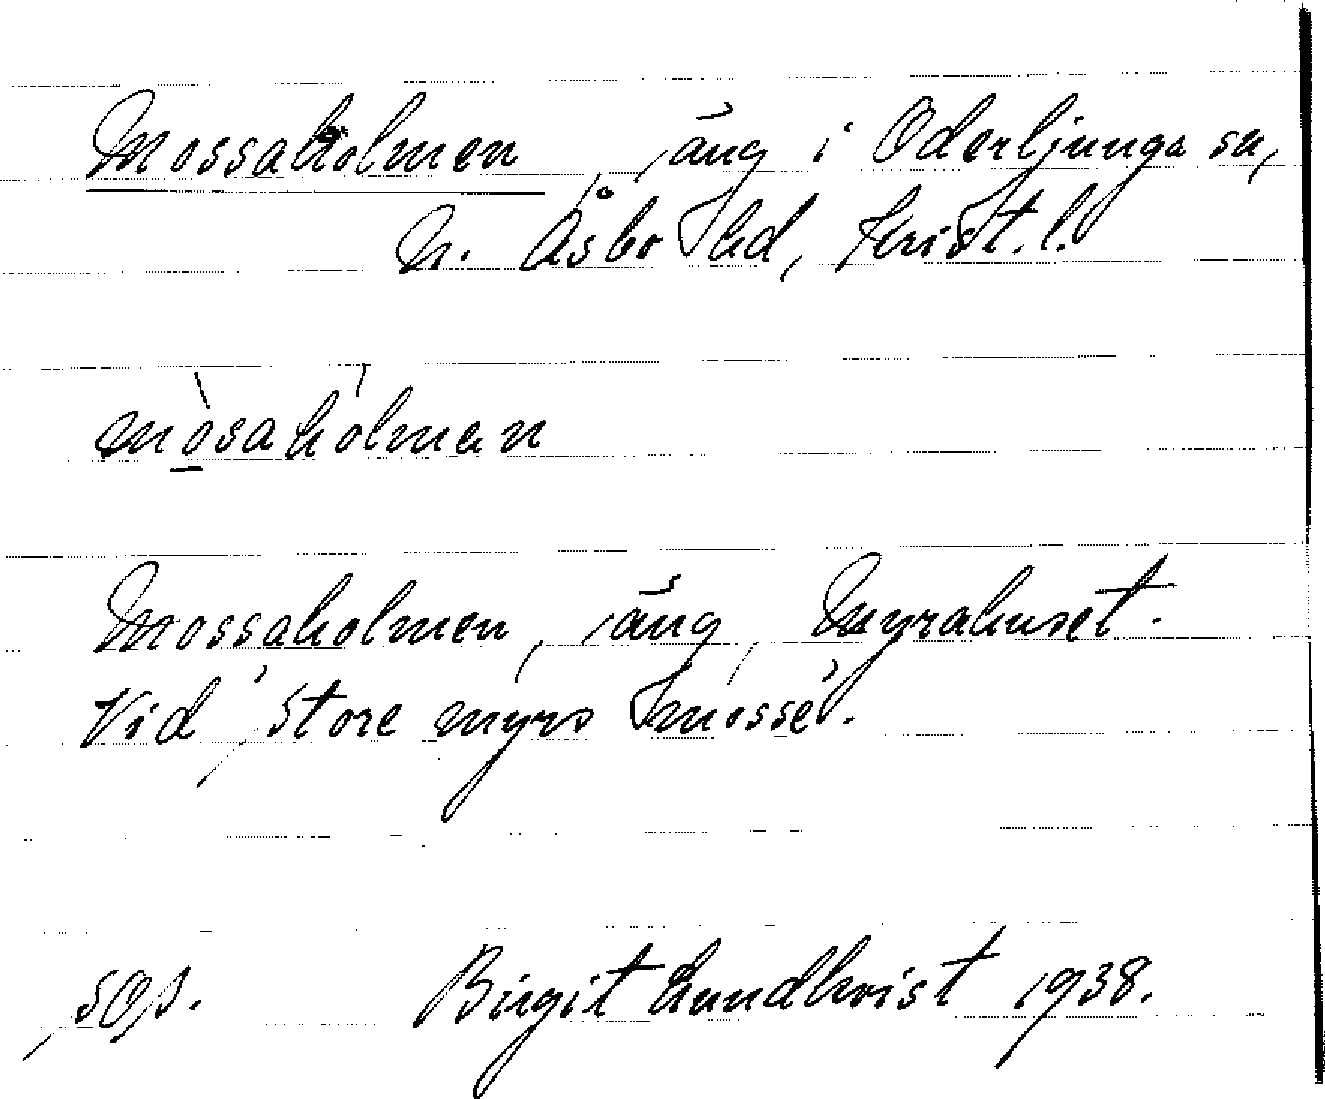 Mossaholmen, äng i Oderljunga sn,
N. Åsbo hd, Krist. l.
mòsahólman
Mossaholmen, äng, Myrahuset.
Vid Store myrs mosse.
Birgit Lundkvist 1938.